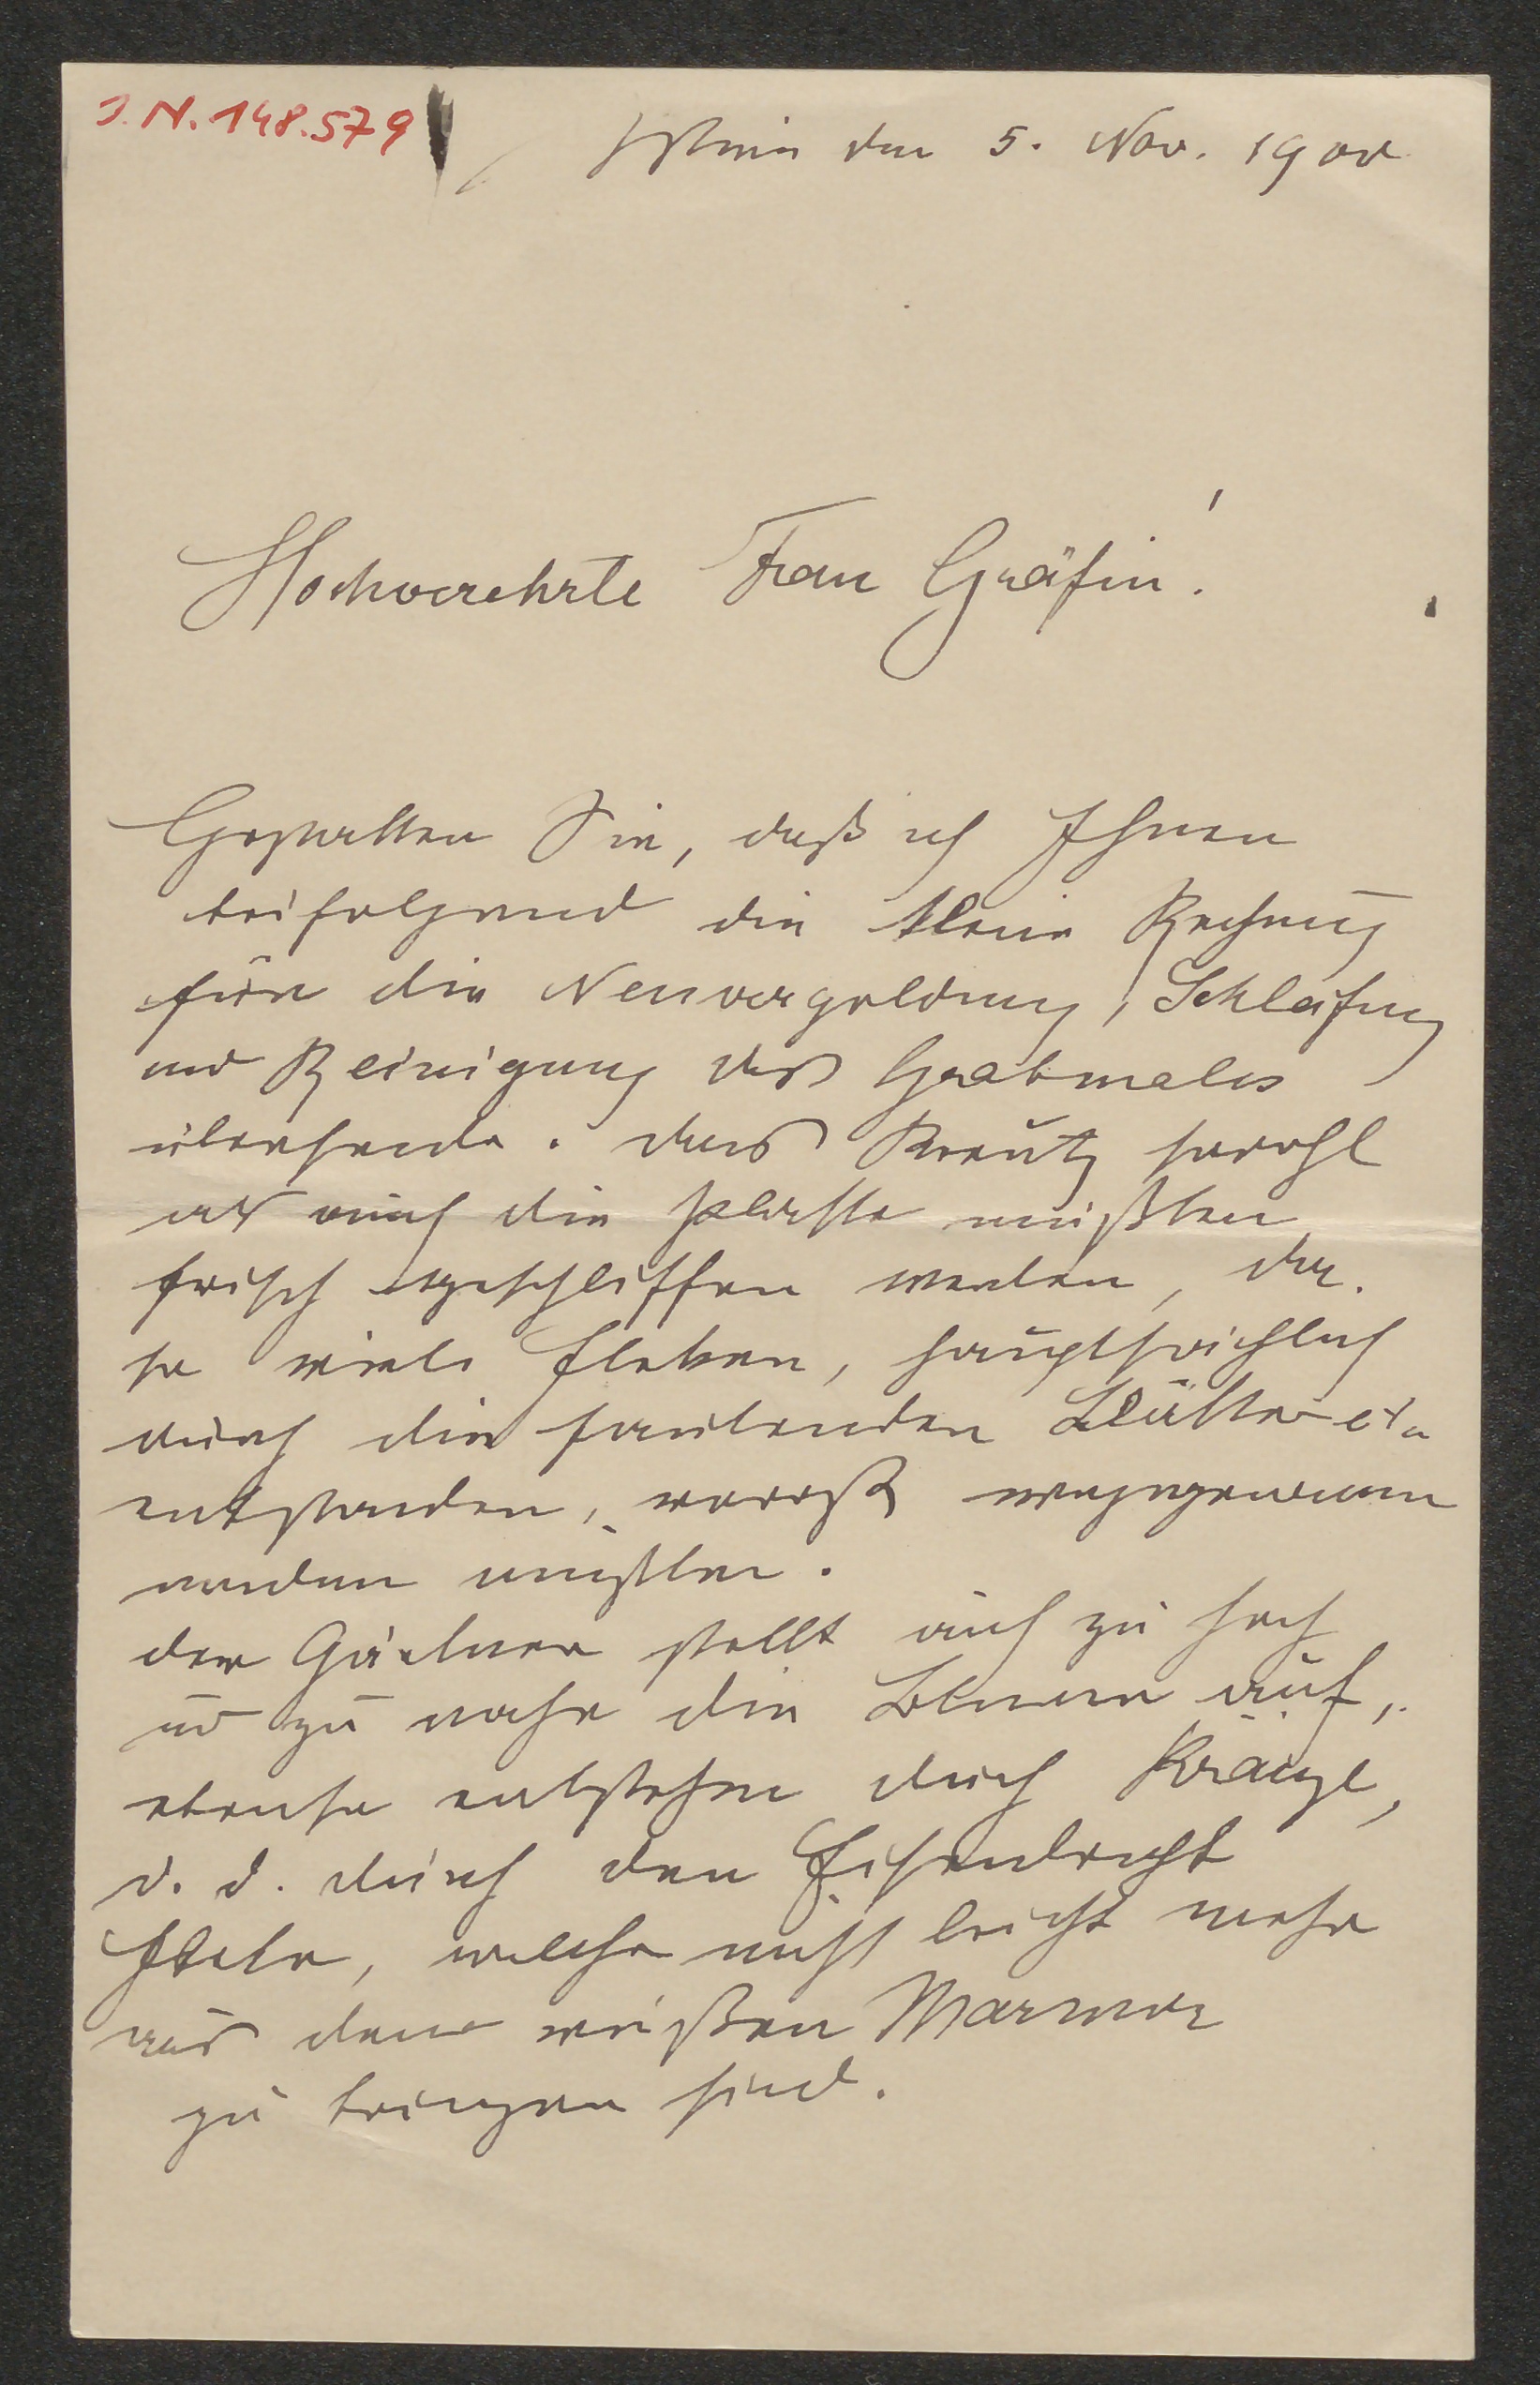 J. N. 148.579
Wien den 5. Nov. 1900
Hochverehrte Frau Gräfin!
Gestatten Sie, daß ich Ihnen
beifolgend die kleine Rechnung
für die Neuvergoldung, Schleifung
und Reinigung des Grabmales
übersende. das Kreutz sowohl
als auch die Platte mußten
frisch geschliffen werden, da
so viele Fleken, hauptsächlich
durch die faulenden Blätter etc
entstanden, weggenommen
werden mußten.
der Gärtner stellt auch zu hoch
u zu nahe die Blumen auf,
ebenso entstehen durch Kränze,
d. d. durch den Eisendraht
Fleke, welche nicht leicht mehr
aus dem weißen Marmor
zu bringen sind.